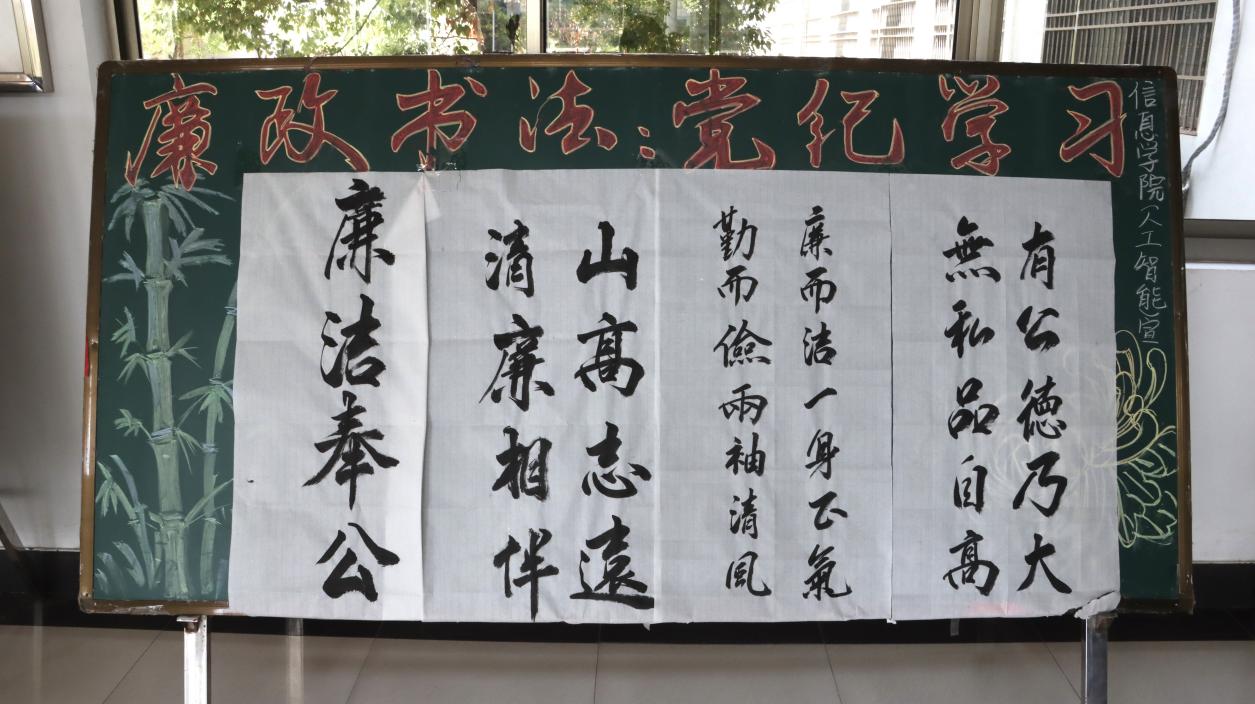 廉政书法：党纪学习
信息学院（人工智能宣
有公德乃大
無私品自高
廉而洁一身正氣
勤而儉兩袖清風
山高志遠
清廉相伴
廉洁奉公